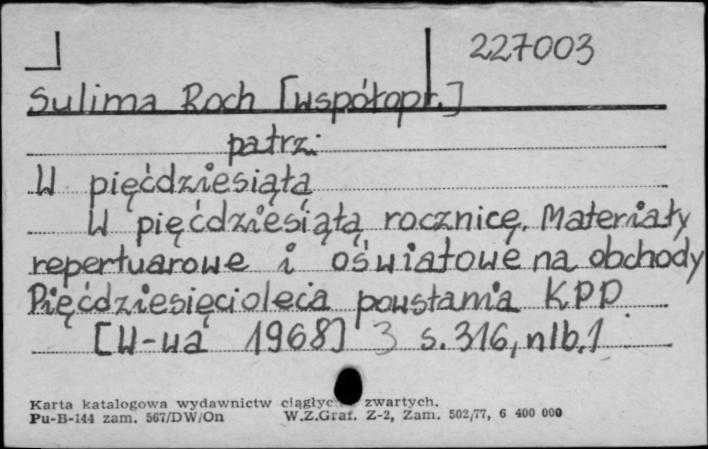 227003
Sulima Roch [współopr.]
patrz:
W pięćdziesiątą
W pięćdziesiątą rocznicę. Materiały
repertuarowe i oświatowe na obchody
Pięćdziesięciolecia powstania KPP
[W-wa 1968] 3 s. 316, nlb. 1
Karta katalogowa wydawnictw zwartych.
Pu-B-144 zam. 567/DW/On W.Z.Graf. Z-2, Zam. 502/77, 6 400 000